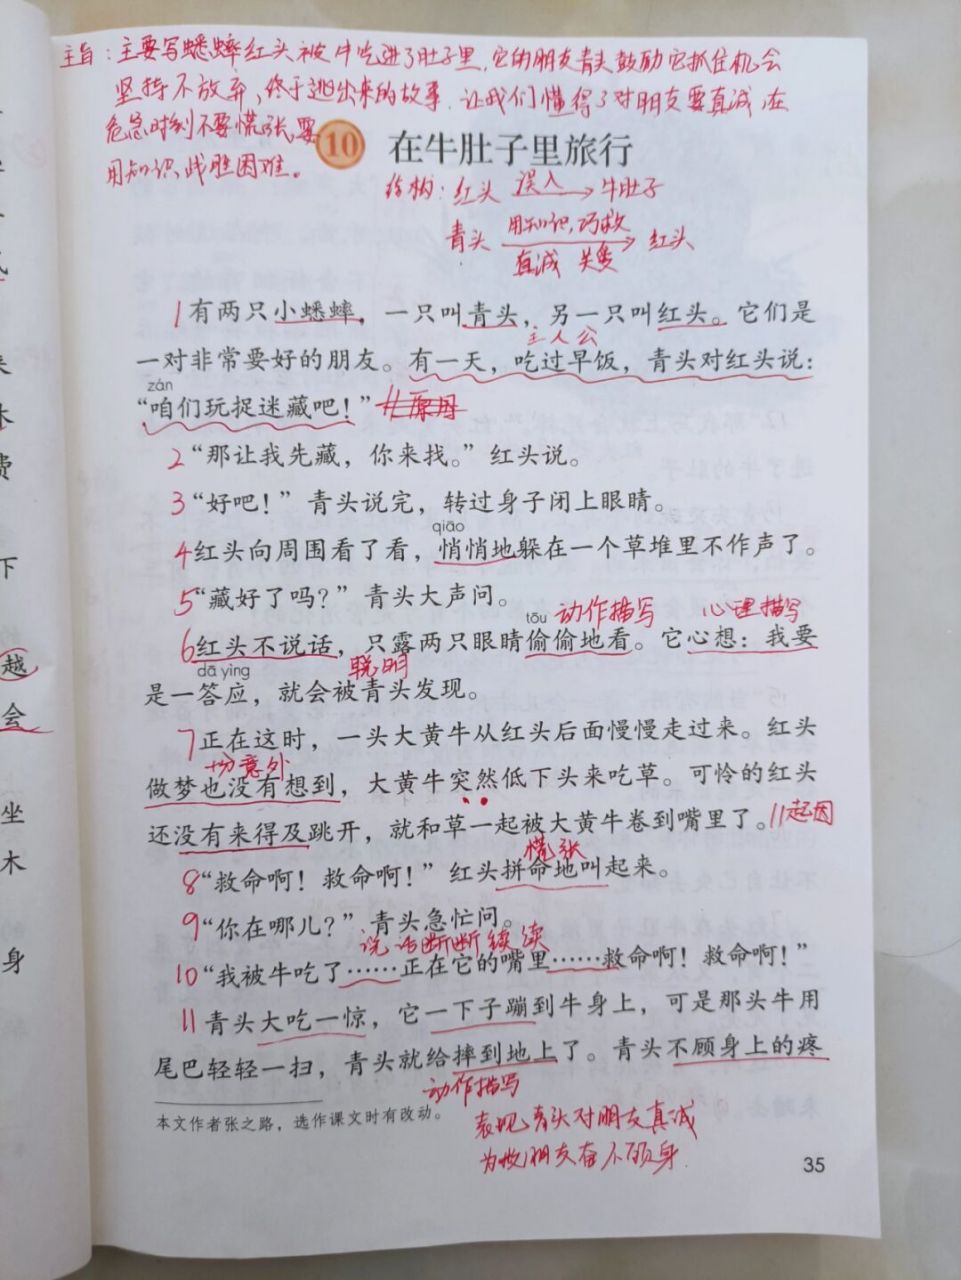 主旨：主要写蟋蟀红头被牛吃进了肚子里，它的朋友青头鼓励它抓住机会
坚持不放弃，终于逃出来的故事．让我们懂得了对朋友要真诚，在
危急时刻不要慌张，要
用知识战胜困难。
10 在牛肚子里旅行
结构：红头 误入 牛肚子
青头 用知识，巧救 红头
真诚 关爱
1有两只小蟋蟀，一只叫青头，另一只叫红头。它们是
主人公
一对非常要好的朋友。有一天，吃过早饭，青头对红头说：
zán
“咱们玩捉迷藏吧！”
2“那让我先藏，你来找。”红头说。
3“好吧！”青头说完，转过身子闭上眼睛。
qiāo
4红头向周围看了看，悄悄地躲在一个草堆里不作声了。
5“藏好了吗？”青头大声问。
tōu 动作描写 心理描写
6红头不说话，只露两只眼睛偷偷地看。它心想：我要
dā yìng 聪明
是一答应，就会被青头发现。
7正在这时，一头大黄牛从红头后面慢慢走过来。红头
十分意外
做梦也没有想到，大黄牛突然低下头来吃草。可怜的红头
还没有来得及跳开，就和草一起被大黄牛卷到嘴里了。//起因
慌张
8“救命啊！救命啊！”红头拼命地叫起来。
9“你在哪儿？”青头急忙问。
说话断断续续
10“我被牛吃了……正在它的嘴里……救命啊！救命啊！”
11青头大吃一惊，它一下子蹦到牛身上，可是那头牛用
尾巴轻轻一扫，青头就给摔到地上了。青头不顾身上的疼
动作描写
本文作者张之路，选作课文时有改动。
表现青头对朋友真诚
为救朋友奋不顾身．
35
越
会
坐
木
身
下